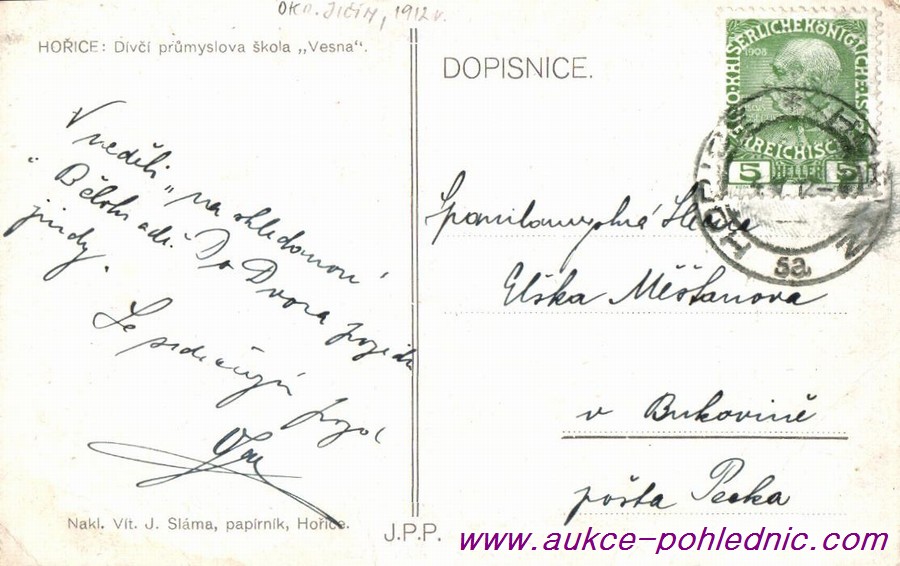 OKR. JIČÍN, 1912 v.
HOŘICE: Dívčí průmyslova škola „Vesna“.
DOPISNICE.
1908
5 HELLER 5
5a.
V neděli „na shledanou
v Bělohradě. Do Dvora pojedu
jindy.
Se srdečným
Slečna
Elška Měšťanova
v Bukovině
pošta Pecka
Nakl. Vít. J. Sláma, papírník, Hořice.
J.P.P.
www.aukce-pohlednic.com